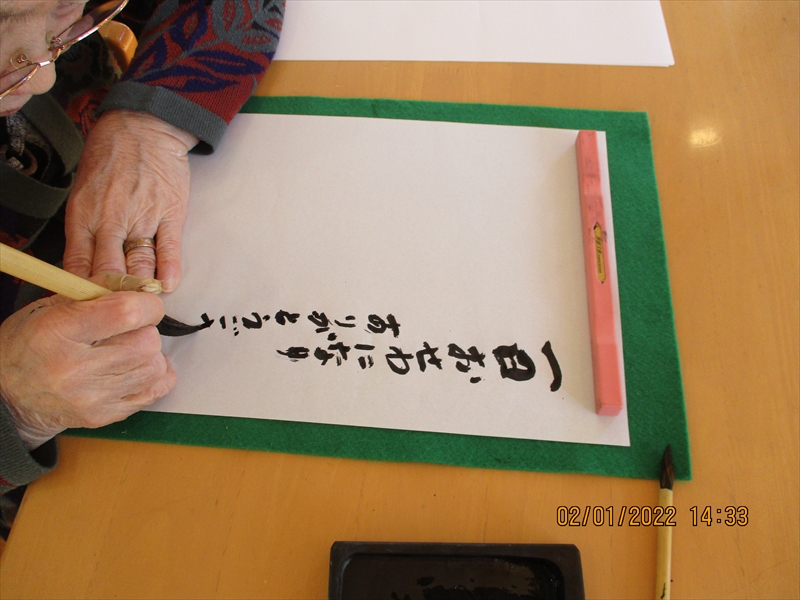 一日おせわになり
ありがとうご
02/01/2022 14:33